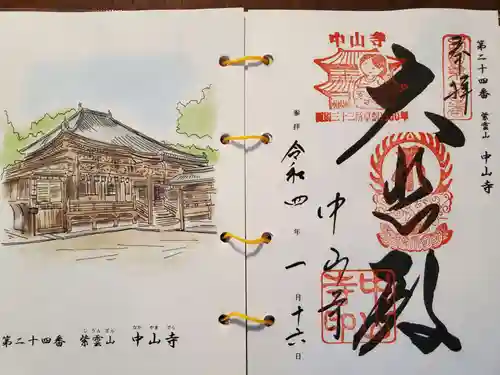 第二十四番 紫雲山 中山寺
しうんざん
なかやまでら
第二十四番 紫雲山 中山寺
奉拝
大悲殿
中山寺
参拝 令和四年一月十六日
中山寺
西国三十三所草創1300年